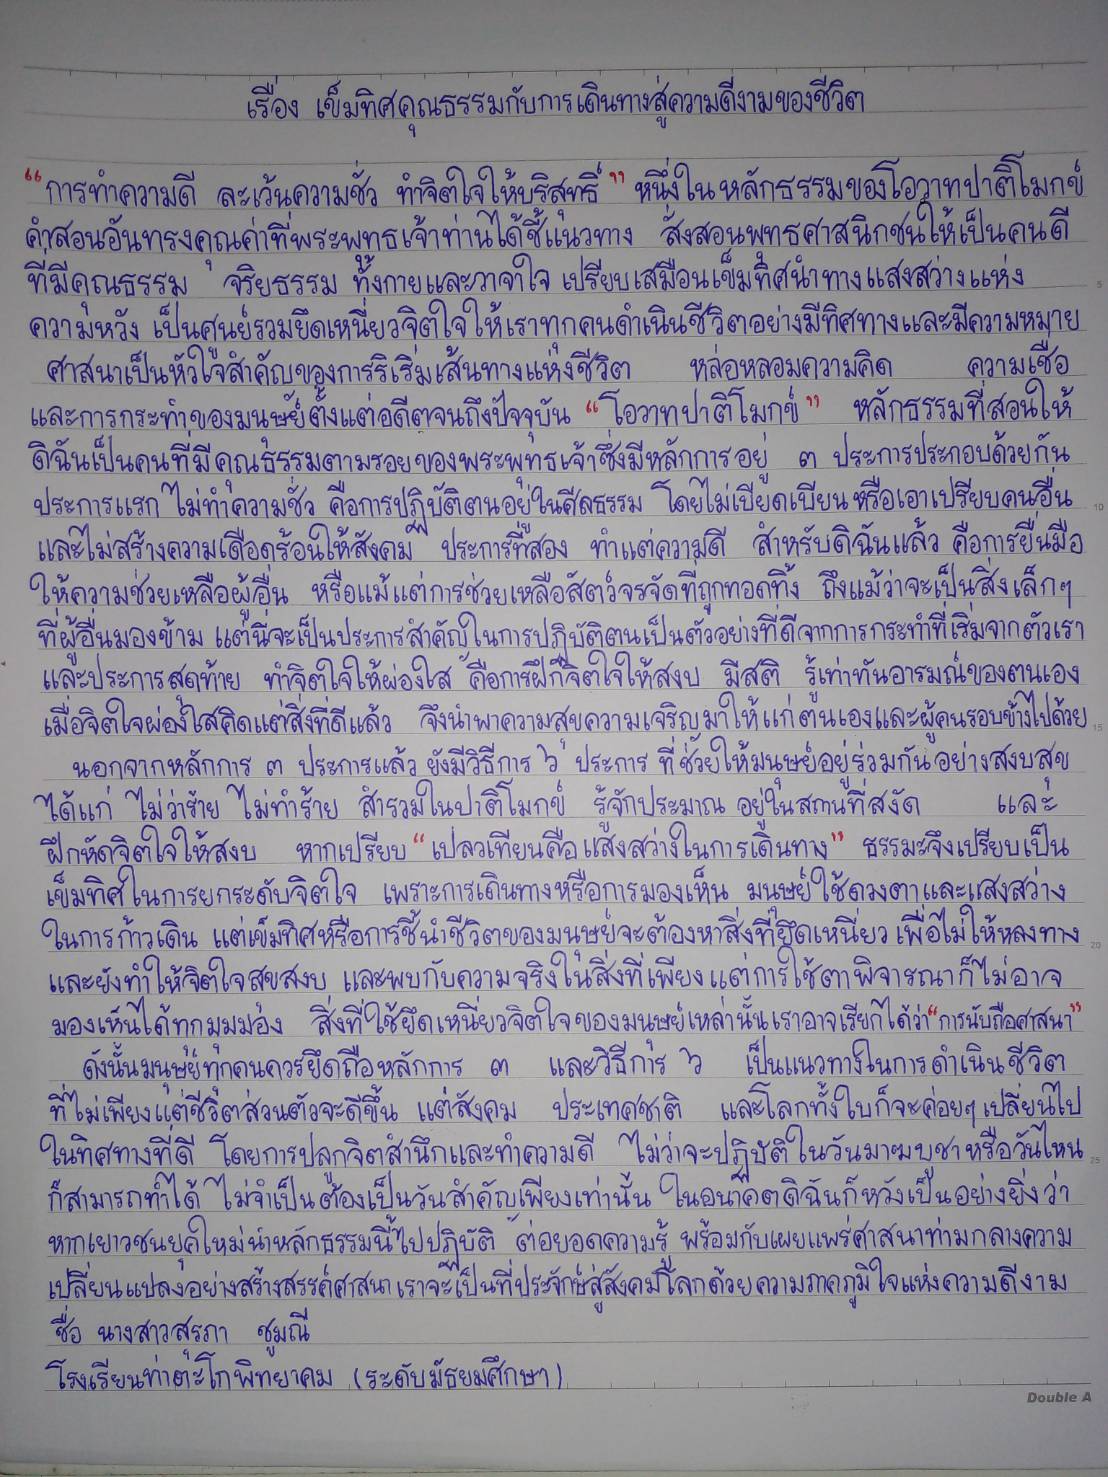 เรื่อง เข็มทิศคุณธรรมกับการเดินทางสู่ความดีงามของชีวิต
“การทำความดี ละเว้นความชั่ว ทำจิตใจให้บริสุทธิ์” หนึ่งในหลักธรรมของโอวาทปาติโมกข์
คำสอนอันทรงคุณค่าที่พระพุทธเจ้าท่านได้ชี้แนวทาง สั่งสอนพุทธศาสนิกชนให้เป็นคนดี
ที่มีคุณธรรม จริยธรรม ทั้งกายและวาจาใจ เปรียบเสมือนเข็มทิศนำทางแสงสว่างแห่ง
ความหวัง เป็นศูนย์รวมยึดเหนี่ยวจิตใจให้เราทุกคนดำเนินชีวิตอย่างมีทิศทางและมีความหมาย
ศาสนาเป็นหัวใจสำคัญของการริเริ่มเส้นทางแห่งชีวิต หล่อหลอมความคิด ความเชื่อ
และการกระทำของมนุษย์ตั้งแต่อดีตจนถึงปัจจุบัน “โอวาทปาติโมกข์” หลักธรรมที่สอนให้
ดิฉันเป็นคนที่มีคุณธรรมตามรอยของพระพุทธเจ้าซึ่งมีหลักการอยู่ ๓ ประการประกอบด้วยกัน
ประการแรก ไม่ทำความชั่ว คือการปฏิบัติตนอยู่ในศีลธรรม โดยไม่เบียดเบียน หรือเอาเปรียบคนอื่น
และไม่สร้างความเดือดร้อนให้สังคม ประการที่สอง ทำแต่ความดี สำหรับดิฉันแล้ว คือการยื่นมือ
ให้ความช่วยเหลือผู้อื่น หรือแม้แต่การช่วยเหลือสัตว์จรจัดที่ถูกทอดทิ้ง ถึงแม้ว่าจะเป็นสิ่งเล็กๆ
ที่ผู้อื่นมองข้าม แต่นี่จะเป็นประการสำคัญในการปฏิบัติตนเป็นตัวอย่างที่ดีจากการกระทำที่เริ่มจากตัวเรา
และประการสุดท้าย ทำจิตใจให้ผ่องใส คือการฝึกจิตใจให้สงบ มีสติ รู้เท่าทันอารมณ์ของตนเอง
เมื่อจิตใจผ่องใสคิดแต่สิ่งที่ดีแล้ว จึงนำพาความสุขความเจริญมาให้แก่ตนเองและผู้คนรอบข้างไปด้วย
นอกจากหลักการ ๓ ประการแล้ว ยังมีวิธีการ ๖ ประการ ที่ช่วยให้มนุษย์อยู่ร่วมกันอย่างสงบสุข
ได้แก่ ไม่ว่าร้าย ไม่ทำร้าย สำรวมในปาติโมกข์ รู้จักประมาณ อยู่ในสถานที่สงัด และ
ฝึกหัดจิตใจให้สงบ หากเปรียบ “เปลวเทียนคือแสงสว่างในการเดินทาง” ธรรมะจึงเปรียบเป็น
เข็มทิศในการยกระดับจิตใจ เพราะการเดินทางหรือการมองเห็น มนุษย์ใช้ดวงตาและแสงสว่าง
ในการก้าวเดิน แต่เข็มทิศหรือการชี้นำชีวิตของมนุษย์จะต้องหาสิ่งที่ยึดเหนี่ยว เพื่อไม่ให้หลงทาง
และยังทำให้จิตใจสุขสงบ และพบกับความจริงในสิ่งที่เพียงแต่การใช้ตาพิจารณาก็ไม่อาจ
มองเห็นได้ทุกมุมมอง สิ่งที่ใช้ยึดเหนี่ยวจิตใจของมนุษย์เหล่านั้นเราอาจเรียกได้ว่า“การนับถือศาสนา”
ดังนั้นมนุษย์ทุกคนควรยึดถือหลักการ ๓ และวิธีการ ๖ เป็นแนวทางในการดำเนินชีวิต
ที่ไม่เพียงแต่ชีวิตส่วนตัวจะดีขึ้น แต่สังคม ประเทศชาติ และโลกทั้งใบก็จะค่อยๆเปลี่ยนไป
ในทิศทางที่ดี โดยการปลูกจิตสำนึกและทำความดี ไม่ว่าจะปฏิบัติในวันมาฆบูชาหรือวันไหน
ก็สามารถทำได้ ไม่จำเป็นต้องเป็นวันสำคัญเพียงเท่านั้น ในอนาคตดิฉันก็หวังเป็นอย่างยิ่งว่า
หากเยาวชนยุคใหม่นำหลักธรรมนี้ไปปฏิบัติ ต่อยอดความรู้ พร้อมกับเผยแพร่ศาสนาท่ามกลางความ
เปลี่ยนแปลงอย่างสร้างสรรค์ศาสนาเราจะเป็นที่ประจักษ์สู่สังคมโลกด้วยความภาคภูมิใจแห่งความดีงาม
ชื่อ นางสาวสุรภา ชูมณี
โรงเรียนท่าตะโกพิทยาคม (ระดับมัธยมศึกษา)
Double A